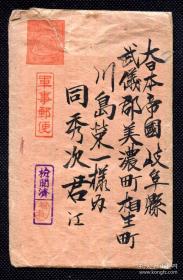 大日本帝國岐阜縣
武儀郡美濃町相生町
川島榮一様方
同秀次君江
軍事郵便
検閲済